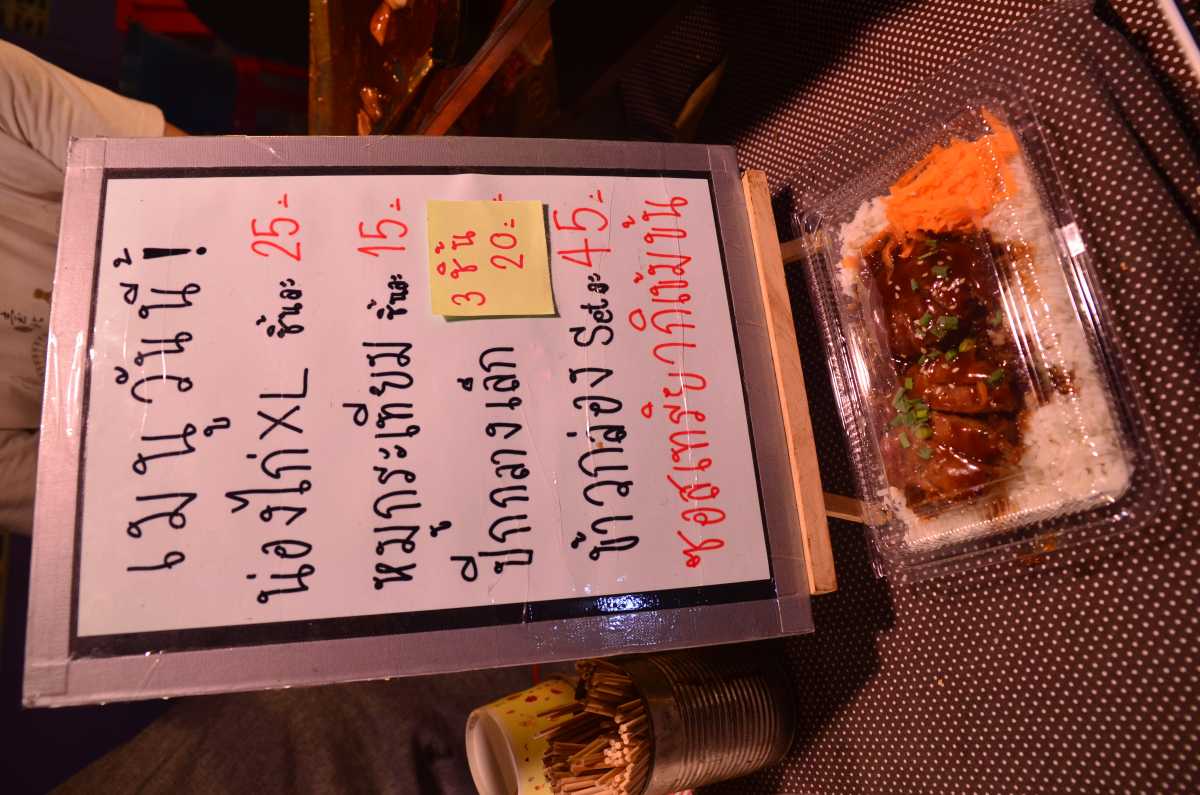 เมนูวันนี้!
น่องไก่ XL ชิ้นละ 25.-
หมูกระเทียม ชิ้นละ 15.-
ปีกกลางเล็ก 3 ชิ้น 20.-
ข้าวกล่อง Setละ 45.-
ซอสเทริยากิเข้มข้น